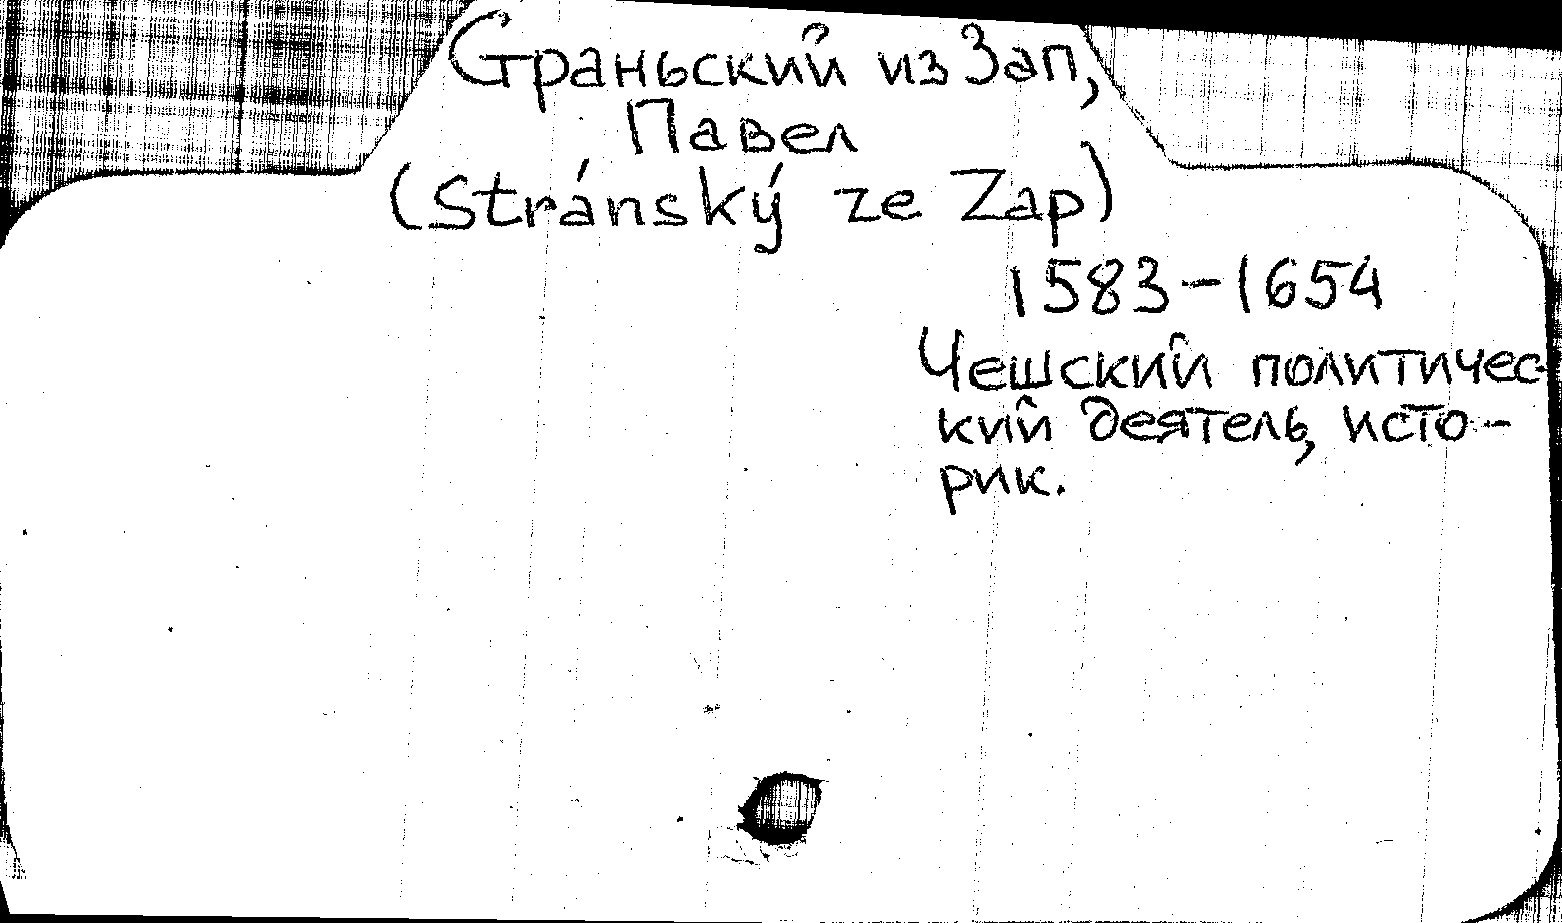 Страньский из Зап,
Павел
(Stránský ze Zap)
1583-1654
Чешский политичес-
кий деятель, исто-
рик.